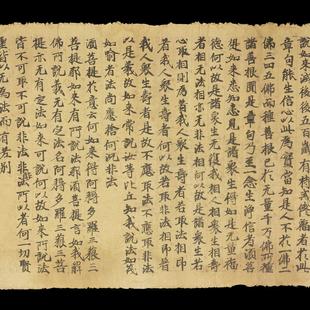 說如来滅後後五百歲有持戒修福者於此
章句能生信心以此為實當知是人不於一佛二
佛三四五佛而種善根已於无量千万佛所種
諸善根聞是章句乃至一念生淨信者須菩
提如来悉知悉見是諸衆生得如是无量福
德何以故是諸衆生无復我相人相衆生相壽
者相无法相亦无非法相何以故是諸衆生若
心取相則為著我人衆生壽者若取法相即
著我人衆生壽者何以故若取非法相即著
我人衆生壽者是故不應取法不應取非法
以是義故如来常說汝等比丘知我說法
如筏喻者法尚應捨何況非法
須菩提於意云何如来得阿耨多羅三藐三
菩提耶如来有所說法耶須菩提言如我解
佛所說義无有定法名阿耨多羅三藐三菩
提亦无有定法如来可說何以故如来所說法
皆不可取不可說非法非非法所以者何一切賢
聖皆以无為法而有差別